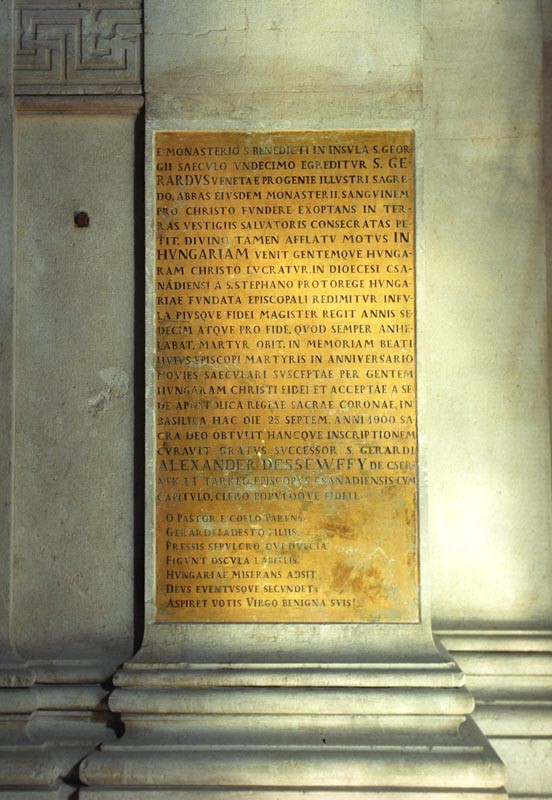 E MONASTERIO S BENEDICTI IN INSULA S. GEOR
GII SAECVLO VNDECIMO EGREDITVR S. GE-
RARDVS VENETA E PROGENIE ILLVSTRI SAGRE-
DO, ABBAS EIVSDEM MONASTERII, SANGVINEM
PRO CHRISTO FVNDERE EXOPTANS IN TER-
RAS VESTIGIIS SALVATORIS CONSECRATAS PE-
TIT, DIVINO TAMEN AFFLATV MOTVS IN
HVNGARIAM VENIT GENTEMQVE HVNGA-
RAM CHRISTO LVCRATVR. IN DIOECESI CSA-
NÁDIENSI A S. STEPHANO PROTOREGE HVNGA-
RIAE FVNDATA EPISCOPALI REDIMITVR INFV-
LA PIVSQVE FIDEI MAGISTER REGIT ANNIS SE-
DECIM ATQVE PRO FIDE, QVOD SEMPER ANHE-
LABAT, MARTYR OBIT. IN MEMORIAM BEATI
HVIVS EPISCOPI MARTYRIS IN ANNIVERSARIO
NOVIES SAECVLARI SVSCEPTAE PER GENTEM
HVNGARAM CHRISTI FIDEI ET ACCEPTAE A SE
DE APOSTOLICA REGIAE SACRAE CORONAE, IN
BASILICA HAC DIE 25 SEPTEM. ANNI 1900 SA
CRA DEO OBTVLIT HANCQVE INSCRIPTIONEM
CVRAVIT GRATVS SVCCESSOR S. GERARDI
ALEXANDER DESSEWFFY DE CSER-
NEK ET TARKEŐ EPISCOPVS CSANADIENSIS CVM
CAPITVLO, CLERO POPVLOQVE FIDELI.
O PASTOR E COELO PARENS
GERARDE ADESTO FILIIS
PRESSIS SEPVLCRO QVI DVLCIA
FIGVNT OSCVLA LABELLIS.
HVNGARIAE MISERANS ADSIT
DEVS EVENTVSQVE SECVNDET:
ASPIRET VOTIS VIRGO BENIGNA SVIS!